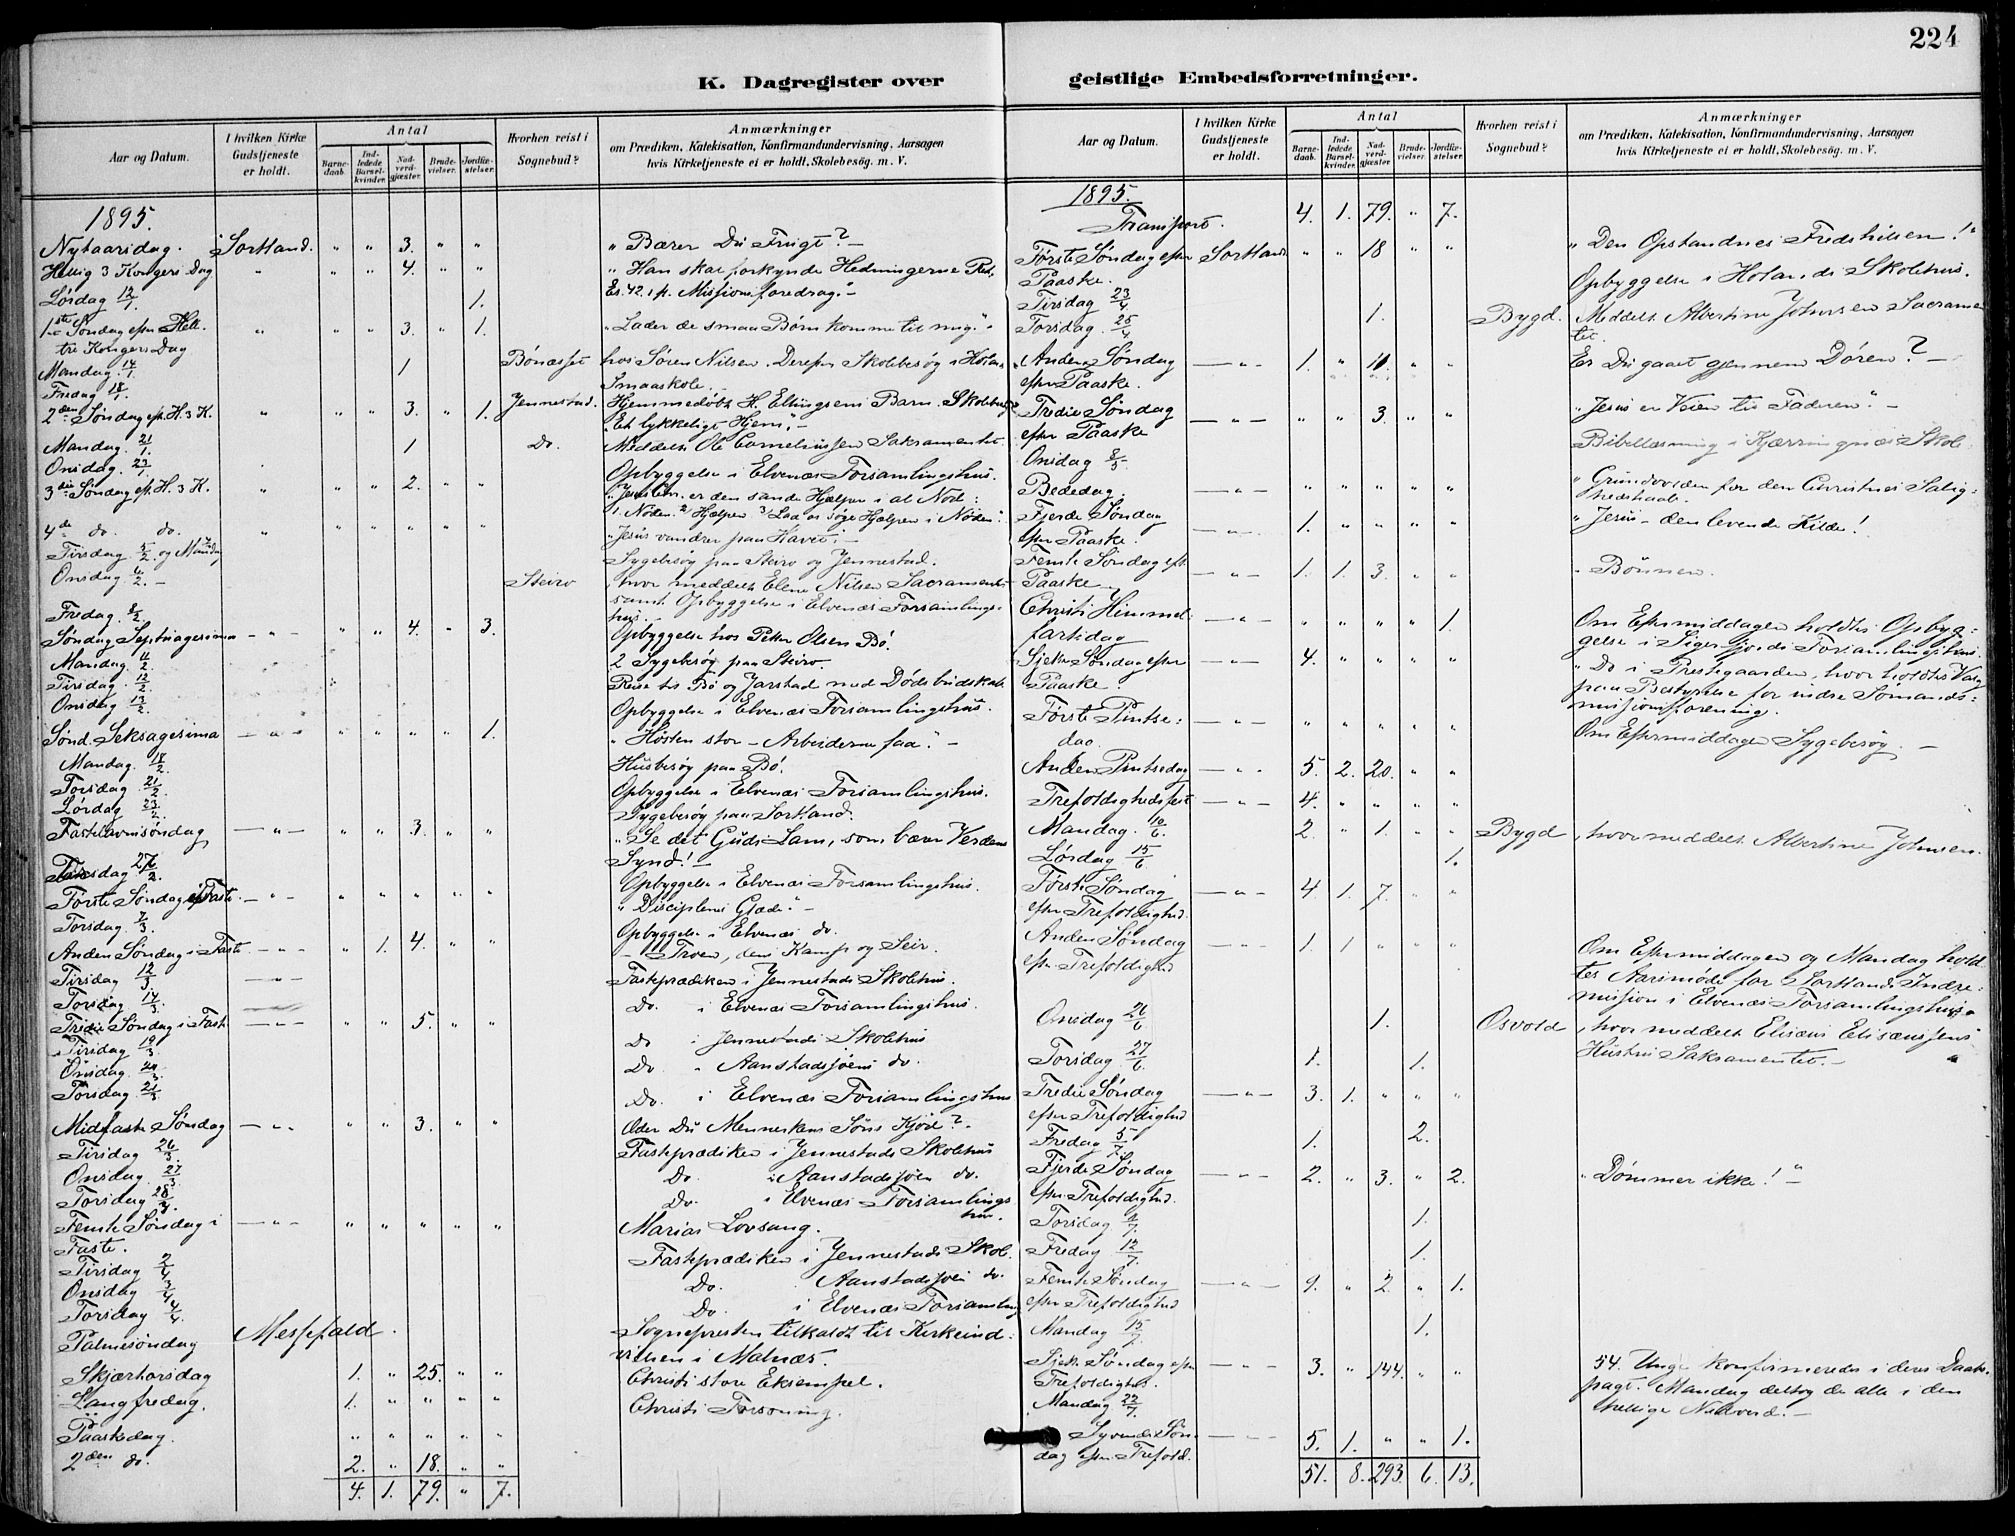 224
K. Dagregister over geistlige Embedsforretninger.
Aar og Datum.
I hvilken Kirke Gudstjeneste er holdt.
Antal
Barne-daab.
Ind-ledede Barsel-kvinder.
Nad-verd-gjæster.
Brude-vielser.
Jordfæ-stelser.
Hvorhen reist i Sognebud?
Anmærkninger
om Prædiken, Katekisation, Konfirmandundervisning, Aarsagen
hvis Kirketjeneste ei er holdt, Skolebesög. m. V.
1895.
Nytaarsdag. Sortland. " " 3. " " "Bærer Du Frugt? –
Hellig 3 Kongers Dag " " " 4. " " "Han skal forkynde Hedningerne Ret,
Es. 42. 1 fl. Missionsforedrag." –
Lørdag 12/1. 1.
1ste Søndag efter Hell. " " " 3. " 1. "Lader de smaa Børn komme til mig." –
tre Kongers Dag
Mandag. 14/1. 1 Bönæsset hos Sören Nilsen. Derefter Skolebesög i Holands
Smaaskole.
Fredag 18/1. Jennestad. Hjemmedøbt H. Ellingsens Barn. Skolebesög
2den Søndag ef. H. 3 K. " " " 3. " 1. "Et lykkeligt Hjem." –
Mandag. 21/1. 1 Do. Meddelt Ole Corneliussen Sakramentet
Onsdag. 23/1. Opbyggelse i Elvenæs Forsamlingshus.
3die Søndag ef. H. 3 K. " " " 2. " " "Jesus er den sande Hjælper i al Nød:
1. Nöden. 2) Hjælpen 3) Lad os søge Hjælpen i Nöden".
4de do. do. " " " " " " "Jesus vandrer paa Havet. –
Tirsdag 5/2. og Mandag Sygebesög paa Steiro og Jennestad.
Onsdag 6/2. – Steiro hvor meddelt Elene Nilsen Sacramentet
samt Opbyggelse i Elvenæs Forsamlings-
hus. –
Fredag 8/2. Opbyggelse hos Petter Olsen Bö.
Søndag Septuagesima – " – " " 4. " 3.
Mandag. 11/2. 2 Sygebesög paa Steiro.
Tirsdag. 12/2. Reise til Bö og Jarstad med Dødsbudskab.
Onsdag 13/2. Opbyggelse i Elvenæs Forsamlingshus.
Sønd. Seksagesima – " – " " " " 1. "Høsten stor – Arbeiderne faa." –
Mandag. 18/2. Husbesög paa Bö.
Torsdag. 21/2. Opbyggelse i Elvenæs Forsamlingshus.
Lørdag 23/2. Sygebesög paa Sortland.
Fastelavnssöndag – " – " " 3. " " "Se det Guds Lam, som bærer Verdens
Synd! –
27/2. Opbyggelse i Elvenæs Forsamlingshus.
Første Søndag i Faste. – " – " " " " " "Disciplenes Glæde." –
Torsdag. 7/3. Opbyggelse i Elvenæs do.
Anden Søndag i Faste – " – " 1. 4. " " – Troen, dens Kamp og Seir.
Tirsdag 12/3. – " – Fasteprædiken i Jennestads Skolehus.
Torsdag 14/3. Do. i Elvenæs Forsamlingshus.
Tredie Søndag i Faste – " – " " 5. " "
Tirsdag 19/3. Do i Jennestads Skolehus
Onsdag. 20/3. Do " Aanstadsjøens do.
Torsdag. 21/3. Do. i Elvenæs Forsamlingshus
Midfaste Søndag – " – " " 3. " " Æder Du Menneskens Søns Kjød? –
Tirsdag 26/3. Fasteprædiken i Jennestads Skolehus
Onsdag. 27/3. Do. i Aanstadsjøen do.
Torsdag 28/3. Do. i Elvenæs Forsamlings
hus.
Femte Søndag i – " – " " " " " Marias Lovsang.
Faste.
Tirsdag 2/4 Fasteprædiken i Jennestads Skol.
Onsdag 3/4. Do. Aanstadsjøen do.
Torsdag 4/4. Do. i Elvenæs Forsamling
Palmesöndag Messefald. Sognepresten tilkaldt til Kirkeind-
vielsen i Malnæs.
Skjærtorsdag 1. " 25. " " Christi store Eksempel.
Langfredag. 1. " " " " Christi Forsoning.
Paaskedag. " " " " "
2den do. 2. " 18. " "
4. 1. 79. " 7.
Aar og Datum.
I hvilken Kirke Gudstjeneste er holdt.
Antal
Barne-daab.
Ind-ledede Barsel-kvinder.
Nad-verd-gjæster.
Brude-vielser.
Jordfæ-stelser.
Hvorhen reist i Sognebud?
Anmærkninger
om Prædiken, Katekisation, Konfirmandundervisning, Aarsagen
hvis Kirketjeneste ei er holdt, Skolebesög. m. V.
1895.
Transport. 4. 1. 79. " 7.
Første Søndag efter Sortland " " 18 " " "Den Opstandnes Fredshilsen!"
Paaske.
Tirsdag 23/4. Opbyggelse i Holands Skolehus.
Torsdag. 25/4. 1. Bygd. Meddelt Albertine Johnsen Sacramen
tet.
Anden Søndag – " – 1. " 10. " " Er Du gaaet gjennem Døren? –
efter Paaske.
Tredie Søndag – " – " " 3 " " "Jesus er Veien til Faderen." –
efter Paaske
Onsdag 8/5. Bibellæsning i Kjærringnæs Skol.
Bededag. – " – " " " " " "Grundvolden for den Christnes Salig-
hedshaab.
Fjerde Søndag – " – 1. " " " " "Jesus – den levende Kilde!
efter Paaske.
Femte Søndag eft. – " – 1. 1. 3. " " "Bönnen.
Paaske
Christi Himmel – " – " " " " 1. Om Eftermiddagen holdtes Opbyg-
fartsdag gelse i Sigerfjords Forsamlingshus.
Sjette Søndag efter – " – 4. " " " " " Do i Prestegaarden, hvor holdtes Valg
Paaske. paa Bestyrelse for indre Sømands-
missionsforening.
Første Pintse- – " – " " " " " Om Eftermiddagen Sygebesög. –
dag.
Anden Pintsedag – " – 5. 2. 20. " "
Trefoldighedsfest – " – 4. " " " "
Mandag. 10/6. 2. " 1. " " Bygd, hvor meddelt Albertine Johnsen.
Lørdag 15/6. 1.
Første Søndag – " – 4. 1. 7. " "
efter Trefoldighed.
Anden Søndag – " – 1. 1 " " " Om Eftermiddagen og Mandag hold
efter Trefoldighed tes Aarsmøde for Sortlands Indre-
mission i Elvenæs Forsamlingshus
Onsdag 26/6 1. Osvold, hvor meddelt Elisæus Elisæussens
Hustru Saksamentet. –
Torsdag 27/6. 1. 1.
Tredie Søndag – " – 3. 1. " " "
efter Trefoldighed
Fredag 5/7. 1. 2.
Fjerde Søndag – " – 2. " 3. " 2. "Dømmer ikke!" –
efter Trefoldighed.
Torsdag 1.
Fredag 12/7. 1.
Femte Søndag – " – 9. " 2 " 1.
efter Trefoldighed
Mandag 15/7. 1.
Sjette Søndag efter – " – 3. " 144. " " 54. Unge konfirmeredes i deres Daabs-
Trefoldighed. pagt. Mandag deltog de alle i den
Mandag 22/7. hellige Nadverd. –
Syvende Søn- – " – 5. 1. " " 1.
dag efter Trefold.
51. 8. 293. 6. 13.